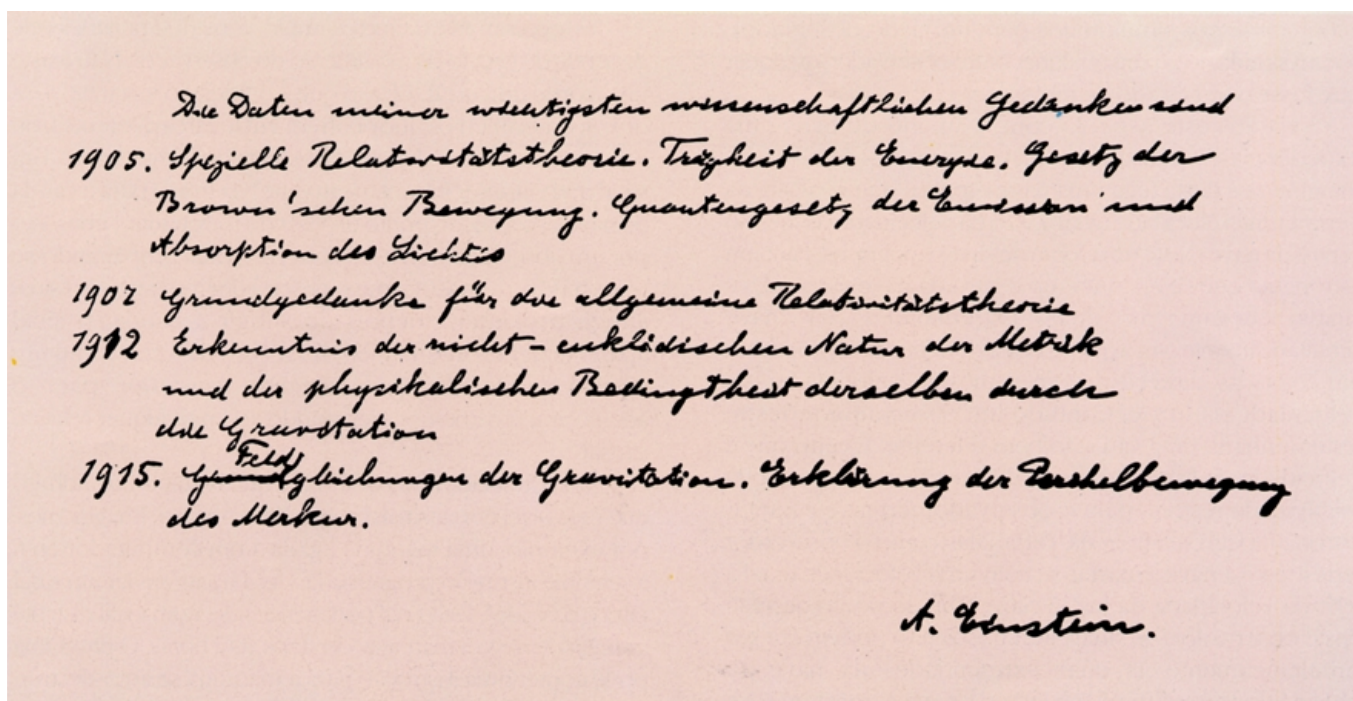 Die Daten meiner wichtigsten wissenschaftlichen Gedanken sind
1905. Spezielle Relativitätstheorie. Trägheit der Energie. Gesetz der
Brown'schen Bewegung. Quantengesetz der Emission und
Absorption des Lichtes
1907 Grundgedanke für die allgemeine Relativitätstheorie
1912 Erkenntnis der nicht-euklidischen Natur der Metrik
und der physikalischen Bedingtheit derselben durch
die Gravitation
1915. Feldgleichungen der Gravitation. Erklärung der Perihelbewegung
des Merkur.
A. Einstein.